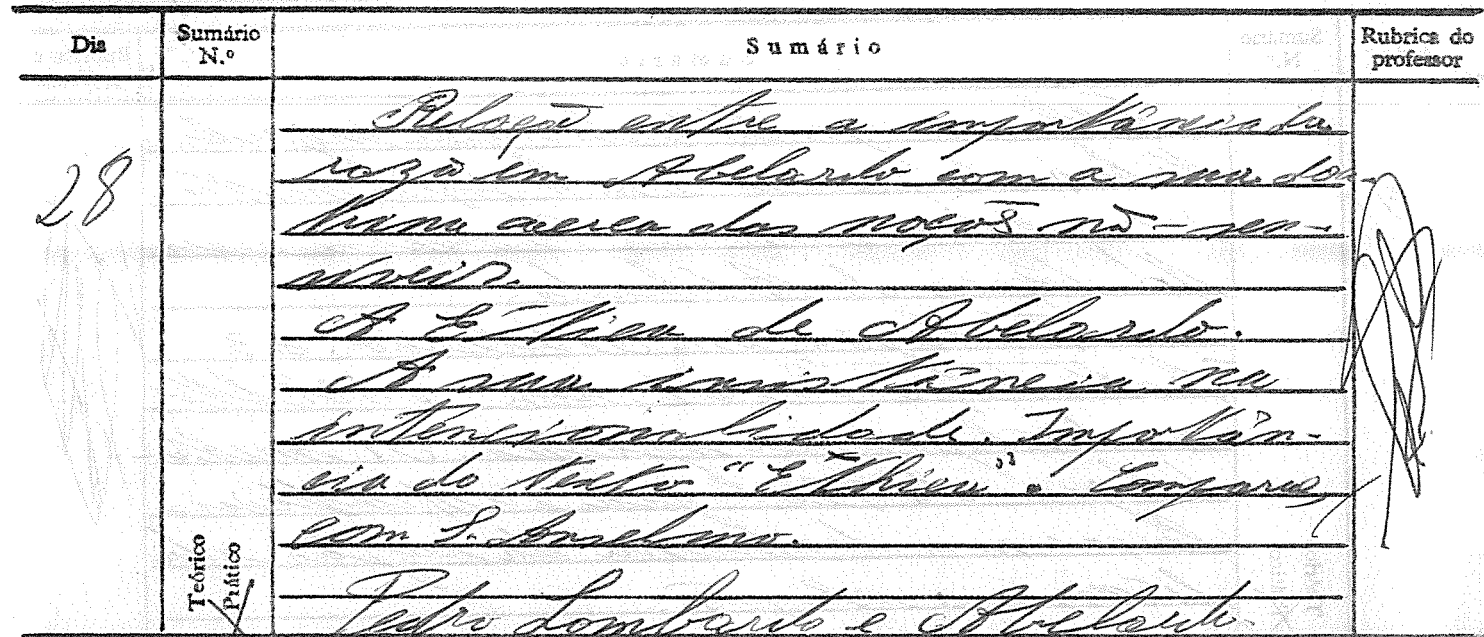 Dia Sumário N.º Sumário Rubrica do professor
28
Relação entre a importância da
razão em Abelardo com a sua dou-
trina acerca das noções não-sen-
síveis.
A Ética de Abelardo.
A sua insistência na
intencionalidade. Importân-
cia do texto "Ethica". Comparaç
com S. Anselmo.
Teórico
Prático
Pedro Lombardo e Abelardo